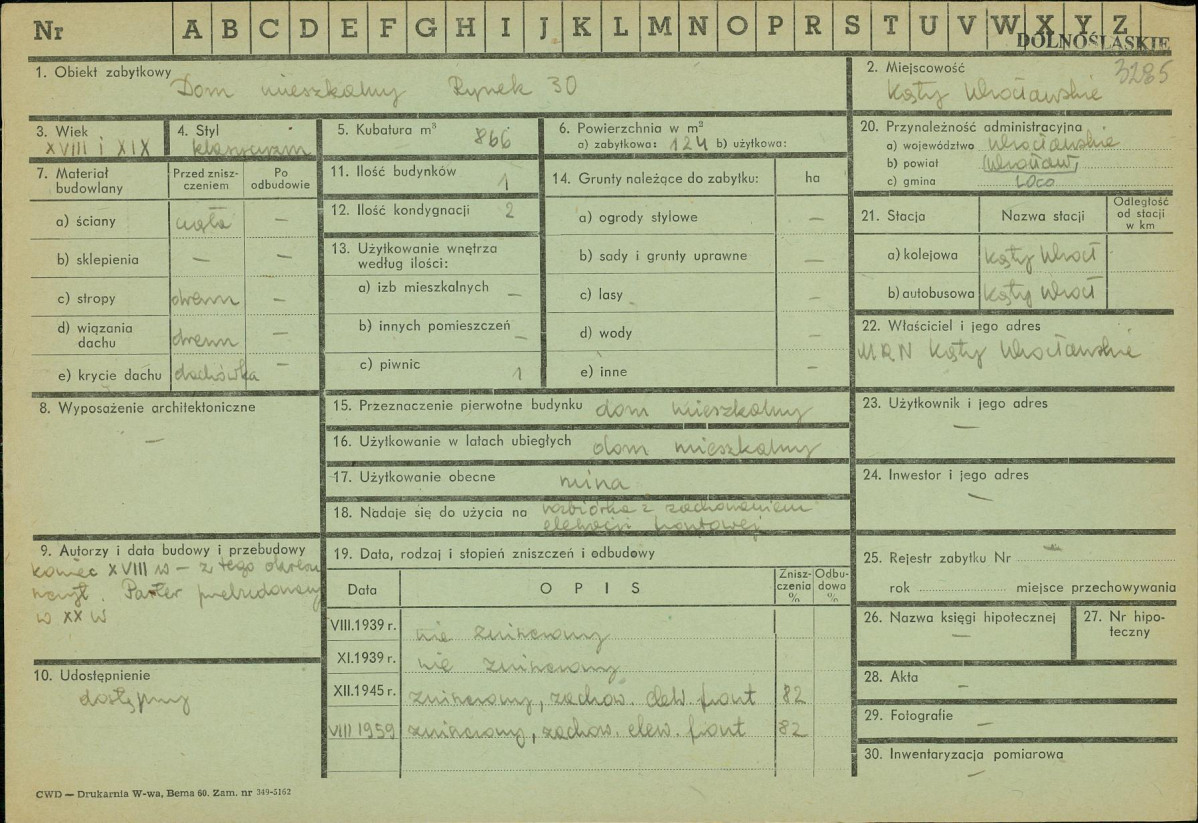 Nr A B C D E F G H I J K L M N O P R S T U V W X Y Z
DOLNOŚLĄSKIE
1. Obiekt zabytkowy Dom mieszkalny Rynek 30
2. Miejscowość 3285
Kąty Wrocławskie
3. Wiek
XVIII i XIX
4. Styl
klasycyzm
5. Kubatura m³ 866
6. Powierzchnia w m²
a) zabytkowa: 124 b) użytkowa:
20. Przynależność administracyjna
a) województwo wrocławskie
b) powiat Wrocław
c) gmina loco
7. Materiał budowlany
Przed zniszczeniem
Po odbudowie
a) ściany cegła —
b) sklepienia — —
c) stropy drewn —
d) wiązania dachu drewn —
e) krycie dachu dachówka —
11. Ilość budynków 1
12. Ilość kondygnacji 2
13. Użytkowanie wnętrza
według ilości:
a) izb mieszkalnych —
b) innych pomieszczeń —
c) piwnic 1
14. Grunty należące do zabytku: ha
a) ogrody stylowe —
b) sady i grunty uprawne —
c) lasy —
d) wody —
e) inne —
21. Stacja Nazwa stacji
Odległość
od stacji
w km
a) kolejowa Kąty Wrocł
b) autobusowa Kąty Wrocł
22. Właściciel i jego adres
MRN Kąty Wrocławskie
8. Wyposażenie architektoniczne
—
15. Przeznaczenie pierwotne budynku dom mieszkalny
16. Użytkowanie w latach ubiegłych dom mieszkalny
17. Użytkowanie obecne ruina
18. Nadaje się do użycia na rozbiórka z zachowaniem
elewacji frontowej
23. Użytkownik i jego adres
—
24. Inwestor i jego adres
—
9. Autorzy i data budowy i przebudowy
koniec XVIII w — z tego okresu
Parter przebudowany
w XX w
10. Udostępnienie
dostępny
19. Data, rodzaj i stopień zniszczeń i odbudowy
Data OPIS
Zniszczenia %
Odbudowa %
VIII.1939 r. nie zniszczony
XI.1939 r. nie zniszczony
XII.1945 r. zniszczony, zachow. elew. front 82
VIII 1959 zniszczony, zachow. elew. front 82
25. Rejestr zabytku Nr —
rok miejsce przechowywania
26. Nazwa księgi hipotecznej
—
27. Nr hipoteczny
28. Akta
—
29. Fotografie —
30. Inwentaryzacja pomiarowa
—
CWD — Drukarnia W-wa, Bema 60. Zam. nr 349-5162